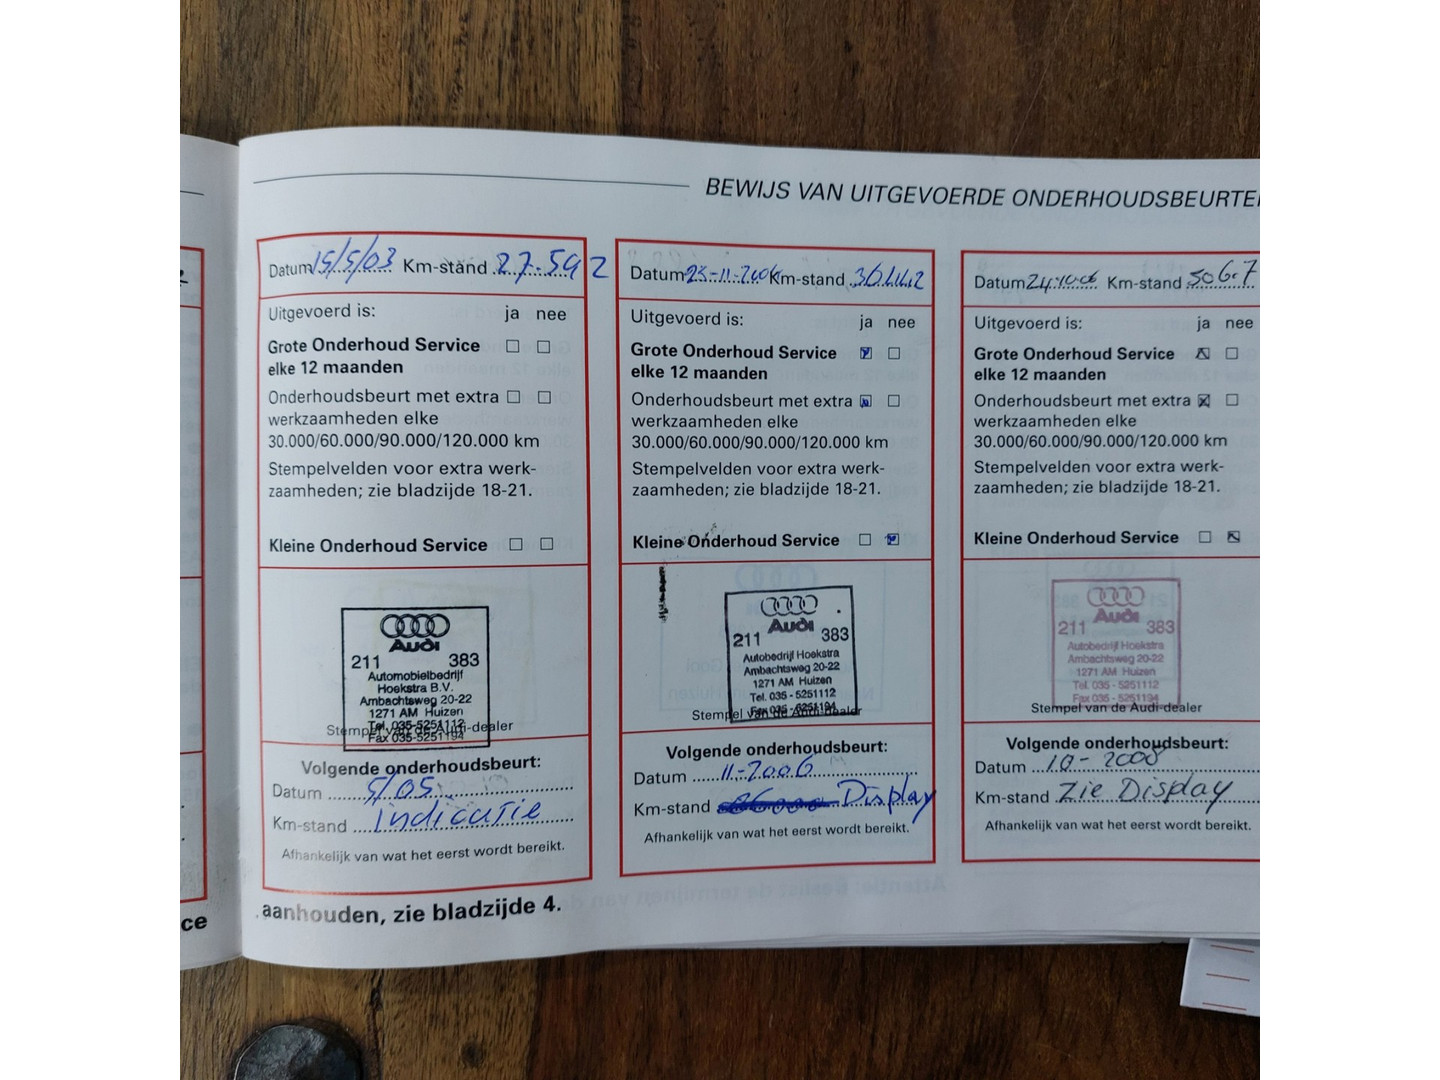 BEWIJS VAN UITGEVOERDE ONDERHOUDSBEURTE
Datum 15/5/03 Km-stand 27.592
Uitgevoerd is: ja nee
Grote Onderhoud Service
elke 12 maanden
Onderhoudsbeurt met extra
werkzaamheden elke
30.000/60.000/90.000/120.000 km
Stempelvelden voor extra werk-
zaamheden; zie bladzijde 18-21.
Kleine Onderhoud Service
Audi
211 383
Automobielbedrijf
Hoekstra B.V.
Ambachtsweg 20-22
1271 AM Huizen
Tel. 035-5251112
Fax 035-5251194
Stempel van de Audi-dealer
Volgende onderhoudsbeurt:
Datum 5/05
Km-stand indicatie
Afhankelijk van wat het eerst wordt bereikt.
Datum Km-stand
Uitgevoerd is: ja nee
Grote Onderhoud Service
elke 12 maanden
Onderhoudsbeurt met extra
werkzaamheden elke
30.000/60.000/90.000/120.000 km
Stempelvelden voor extra werk-
zaamheden; zie bladzijde 18-21.
Kleine Onderhoud Service
Audi
211 383
Autobedrijf Hoekstra
Ambachtsweg 20-22
1271 AM Huizen
Tel. 035 - 5251112
Fax 035 - 5251194
Stempel van de Audi-dealer
Volgende onderhoudsbeurt:
Datum 11-2006
Km-stand Display
Afhankelijk van wat het eerst wordt bereikt.
Datum Km-stand
Uitgevoerd is: ja nee
Grote Onderhoud Service
elke 12 maanden
Onderhoudsbeurt met extra
werkzaamheden elke
30.000/60.000/90.000/120.000 km
Stempelvelden voor extra werk-
zaamheden; zie bladzijde 18-21.
Kleine Onderhoud Service
Audi
211 383
Autobedrijf Hoekstra
Ambachtsweg 20-22
1271 AM Huizen
Tel. 035 - 5251112
Fax 035 - 5251194
Stempel van de Audi-dealer
Volgende onderhoudsbeurt:
Datum 10-2008
Km-stand Zie Display
Afhankelijk van wat het eerst wordt bereikt.
aanhouden, zie bladzijde 4.
ce